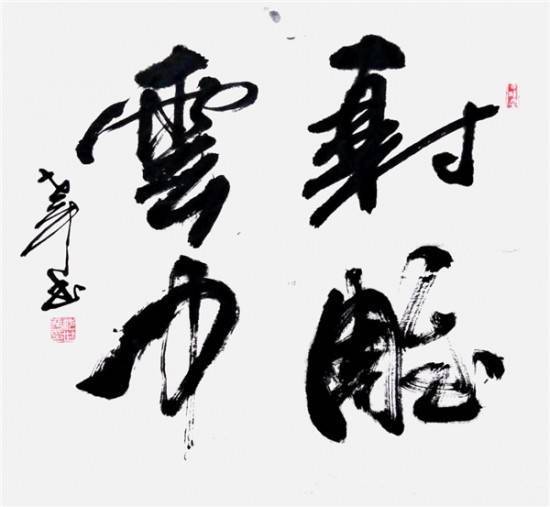 射雕
雲中